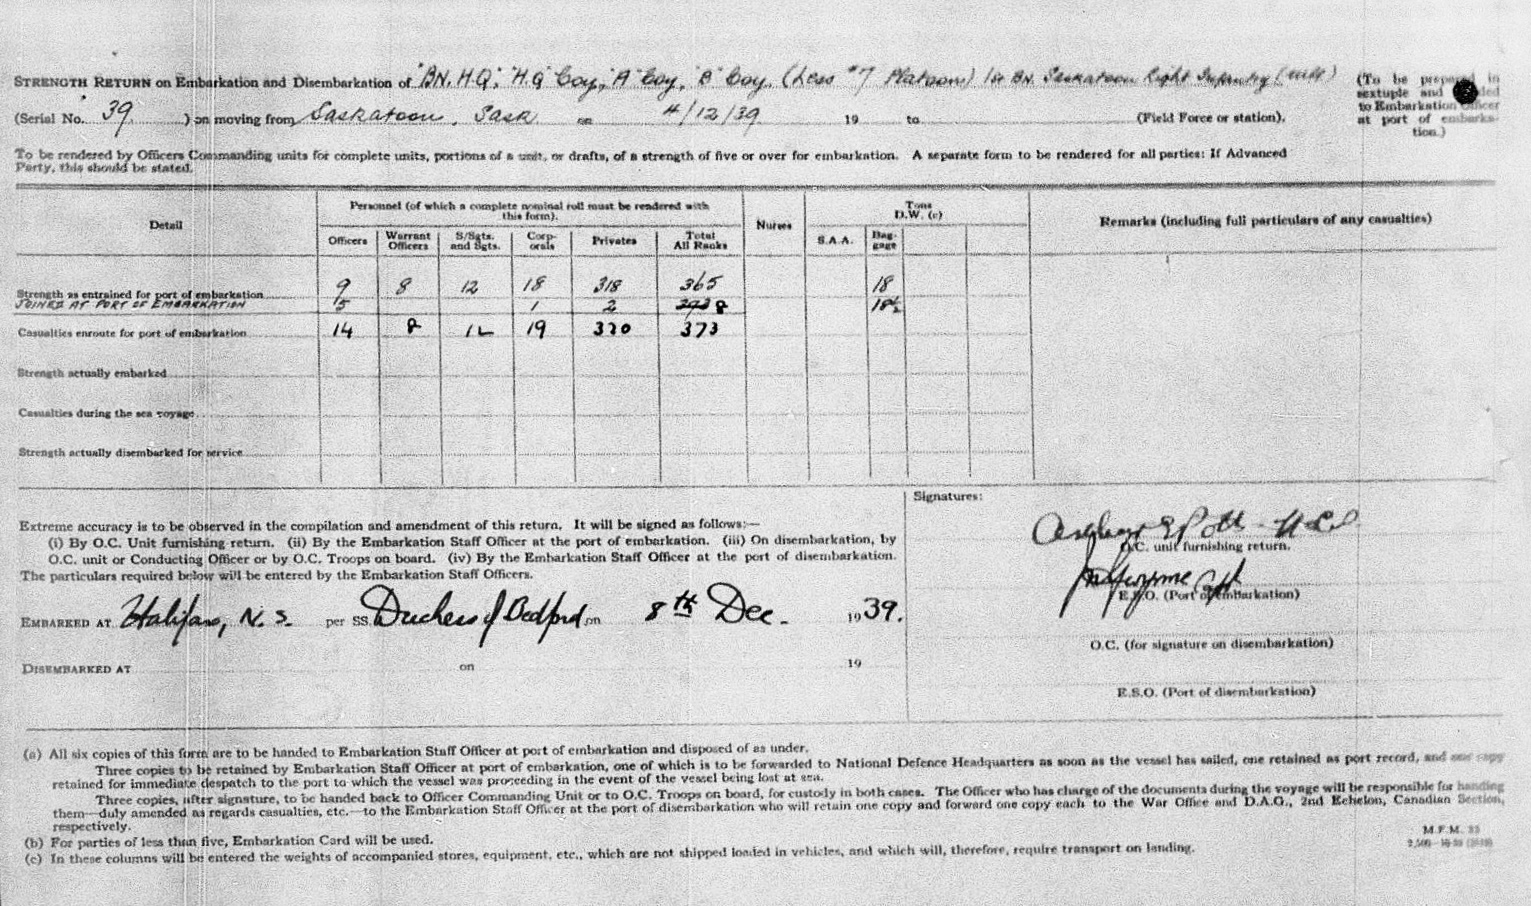 STRENGTH RETURN on Embarkation and Disembarkation of "BN. H.Q.", "H.Q" Coy, "A" Coy, "B" Coy. (Less #7 Platoon) 1st Bn. Saskatoon Light Infantry (MG) (To be prepared in
sextuple and to Embarkation Officer
at port of embarka-
tion.)
(Serial No. 39 ) on moving from Saskatoon, Sask on 4/12/39 19 to (Field Force or station).
To be rendered by Officers Commanding units for complete units, portions of a unit, or drafts, of a strength of five or over for embarkation. A separate form to be rendered for all parties: If Advanced
Party, this should be stated.
Detail
Personnel (of which a complete nominal roll must be rendered with
this form).
Nurses
Tons
D.W. (c)
Remarks (including full particulars of any casualties)
Officers Warrant Officers S/Sgts. and Sgts. Corp-orals Privates Total All Ranks S.A.A. Bag-gage
Strength as entrained for port of embarkation 9 8 12 18 318 365 18
JOINED AT PORT OF EMBARKATION 5 1 2 8 18½
Casualties enroute for port of embarkation 14 8 12 19 320 373
Strength actually embarked
Casualties during the sea voyage
Strength actually disembarked for service
Signatures:
Extreme accuracy is to be observed in the compilation and amendment of this return. It will be signed as follows:—
(i) By O.C. Unit furnishing return. (ii) By the Embarkation Staff Officer at the port of embarkation. (iii) On disembarkation, by
O.C. unit or Conducting Officer or by O.C. Troops on board. (iv) By the Embarkation Staff Officer at the port of disembarkation.
The particulars required below will be entered by the Embarkation Staff Officers.
O.C. unit furnishing return.
Capt
E.S.O. (Port of embarkation)
EMBARKED AT Halifax, N.S. per SS. Duchess of Bedford on 8th Dec. 1939.
O.C. (for signature on disembarkation)
DISEMBARKED AT on 19
E.S.O. (Port of disembarkation)
(a) All six copies of this form are to be handed to Embarkation Staff Officer at port of embarkation and disposed of as under.
Three copies to be retained by Embarkation Staff Officer at port of embarkation, one of which is to be forwarded to National Defence Headquarters as soon as the vessel has sailed, one retained as port record, and one copy
retained for immediate despatch to the port to which the vessel was proceeding in the event of the vessel being lost at sea.
Three copies, after signature, to be handed back to Officer Commanding Unit or to O.C. Troops on board, for custody in both cases. The Officer who has charge of the documents during the voyage will be responsible for handing
them—duly amended as regards casualties, etc.—to the Embarkation Staff Officer at the port of disembarkation who will retain one copy and forward one copy each to the War Office and D.A.G., 2nd Echelon, Canadian Section,
respectively.
(b) For parties of less than five, Embarkation Card will be used.
(c) In these columns will be entered the weights of accompanied stores, equipment, etc., which are not shipped loaded in vehicles, and which will, therefore, require transport on landing.
M.F.M. 33